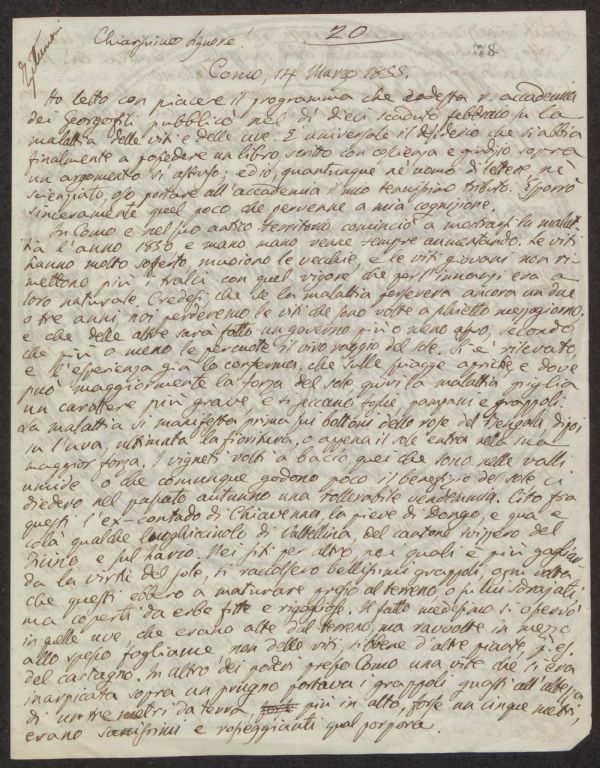 20
78
Chiarissimo signore!
Como, 14 Marzo 1855.
Ho letto con piacere il programma che codesta r. accademia
dei Georgofili pubblicò nel dì dieci scaduto febbraio su la
malattia delle viti e delle uve. È universale il desiderio che si abbia
finalmente a possedere un libro, scritto con coscienza e giudizio, sopra
un argomento sì astruso; ed io, quantunque nè uomo di lettere, nè
scienziato, oso portare all'accademia il mio tenuissimo tributo. Esporrò
sinceramente quel poco che pervenne a mia cognizione.
In Como e nel suo antico territorio cominciò a mostrarsi la malat-
tia l'anno 1850 e mano mano venne sempre aumentando. Le viti
hanno molto sofferto, muoiono le vecchie, e le viti giovani non ri-
mettono più i tralci con quel vigore, che per l'innanzi era a
loro naturale. Credesi che se la malattia persevera ancora un due
o tre anni, noi perderemo le viti che sono volte a schietto mezzogiorno,
e che delle altre sarà fatto un governo più o meno aspro, secondo
che più o meno le percuote il vivo raggio del sole. Si è rilevato
e l'esperienza già lo conferma, che sulle piagge apriche e dove
può maggiormente la forza del sole quivi la malattia piglia
un carattere più grave, e si seccano foglie, pampani e grappoli.
La malattia si manifesta prima sui bottoni delle rose del Bengala, dipoi
su l'uva, ultimata la fioritura, o appena il sole entra nella sua
maggior forza. I vigneti volti a bacìo, quei che sono nelle valli
umide o che comunque godono poco il beneficio del sole ci
diedero nel passato autunno una tollerabile vendemmia. Cito fra
questi l'ex-contado di Chiavenna, la pieve di Dongo, e qua e
colà qualche luoghicciuolo di Valtellina, del cantone svizzero del
Ticino e sul Lario. Nei siti per altro nei quali è più gagliar-
da la virtù del sole, si raccolsero bellissimi grappoli, ogni volta
che questi ebbero a maturare presso al terreno o su lui sdraiati,
ma coperti da erbe fitte e rigogliose. Il fatto medesimo si osservò
in quelle uve, che erano alte dal terreno, ma ravvolte in mezzo
allo spesso fogliame non delle viti, sibbene d'altre piante, p. es.
del castagno. In altro dei poderi presso Como una vite che si era
inarpicata sopra un prugno portava i grappoli guasti all'altezza
di un metri da terra più in alto, forse un cinque metri,
erano sanissimi e rosseggianti qual porpora.